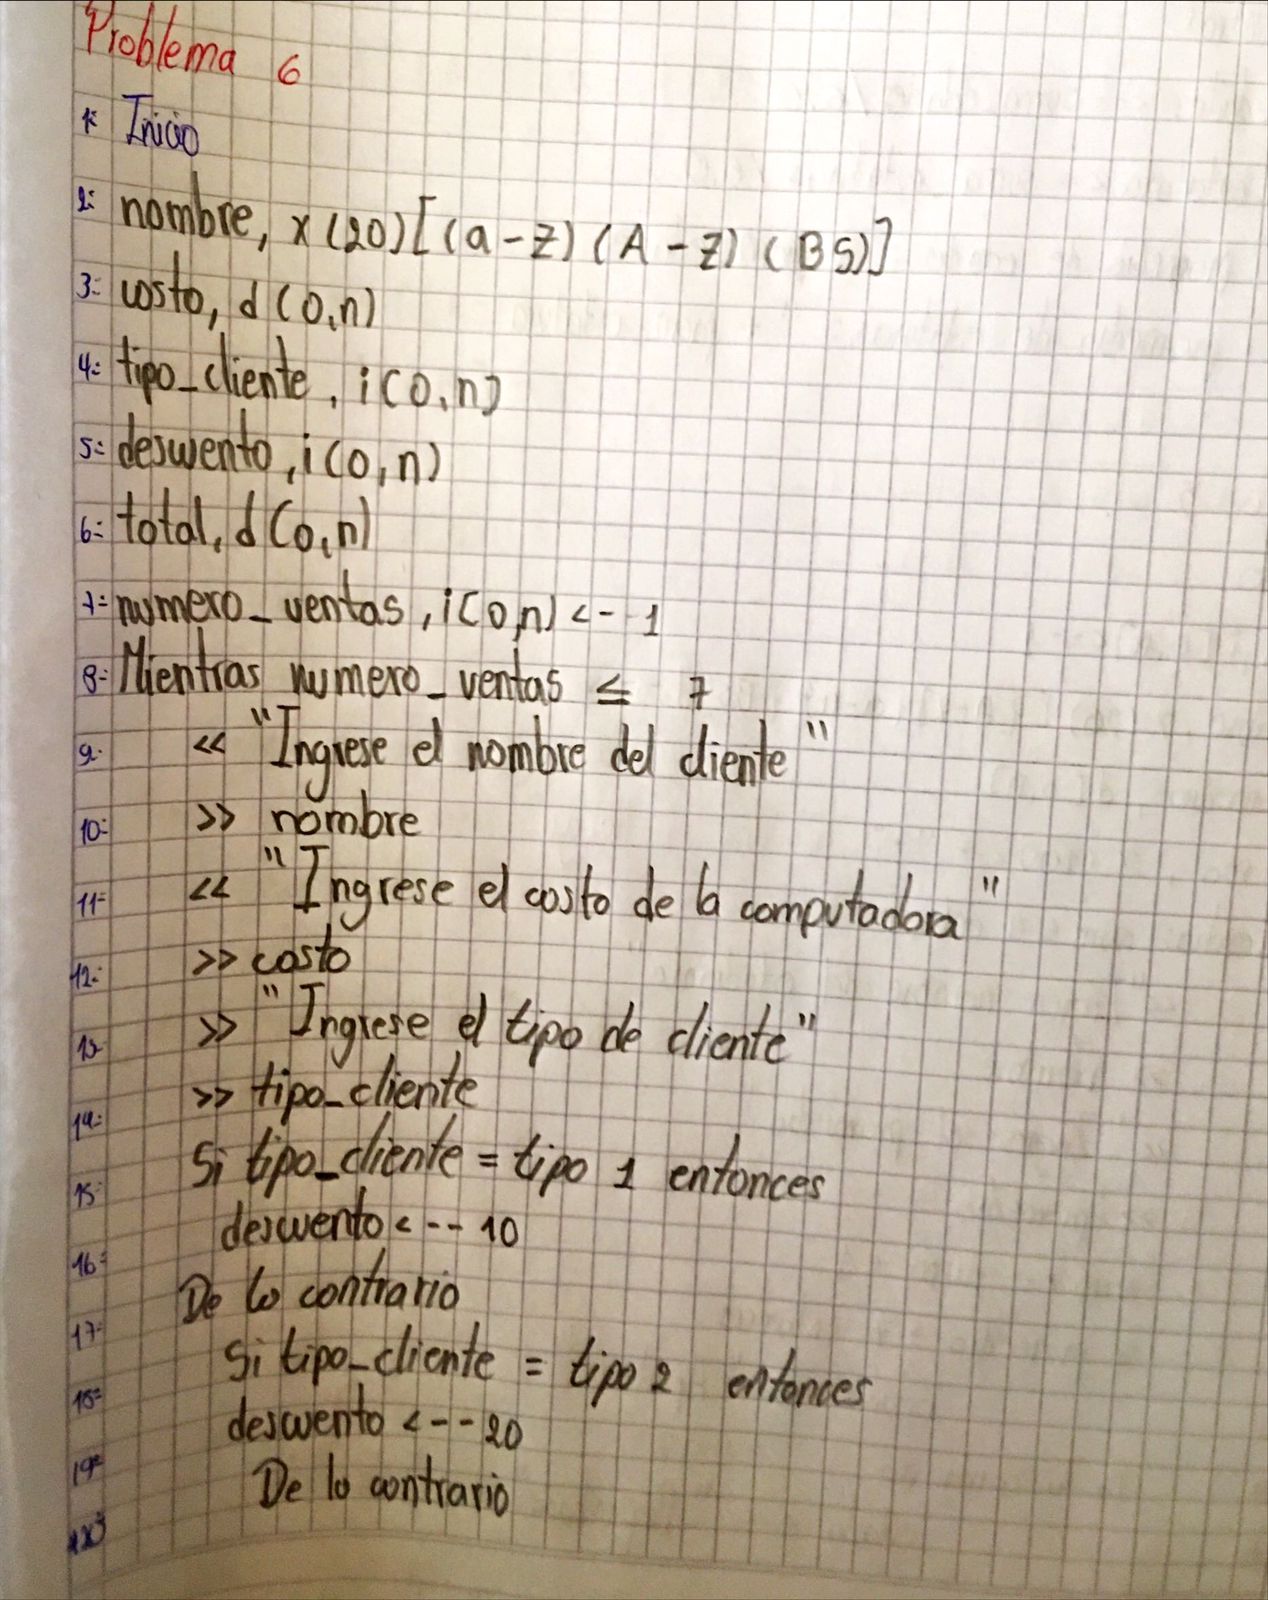 Problema 6
1= Inicio
2= nombre, x (20) [(a-z) (A-Z) (BS)]
3= costo, d (0,n)
4= tipo_cliente, i(0,n)
5= descuento, i(0,n)
6= total, d(0,n)
7= numero_ventas, i(0,n) <-- 1
8= Mientras numero_ventas ≤ 7
9- << "Ingrese el nombre del cliente"
10= >> nombre
11= << "Ingrese el costo de la computadora"
12= >> costo
13- >> "Ingrese el tipo de cliente"
14= >> tipo_cliente
15= Si tipo_cliente = tipo 1 entonces
16= descuento <-- 10
17= De lo contrario
18= Si tipo_cliente = tipo 2 entonces
19= descuento <-- 20
20= De lo contrario